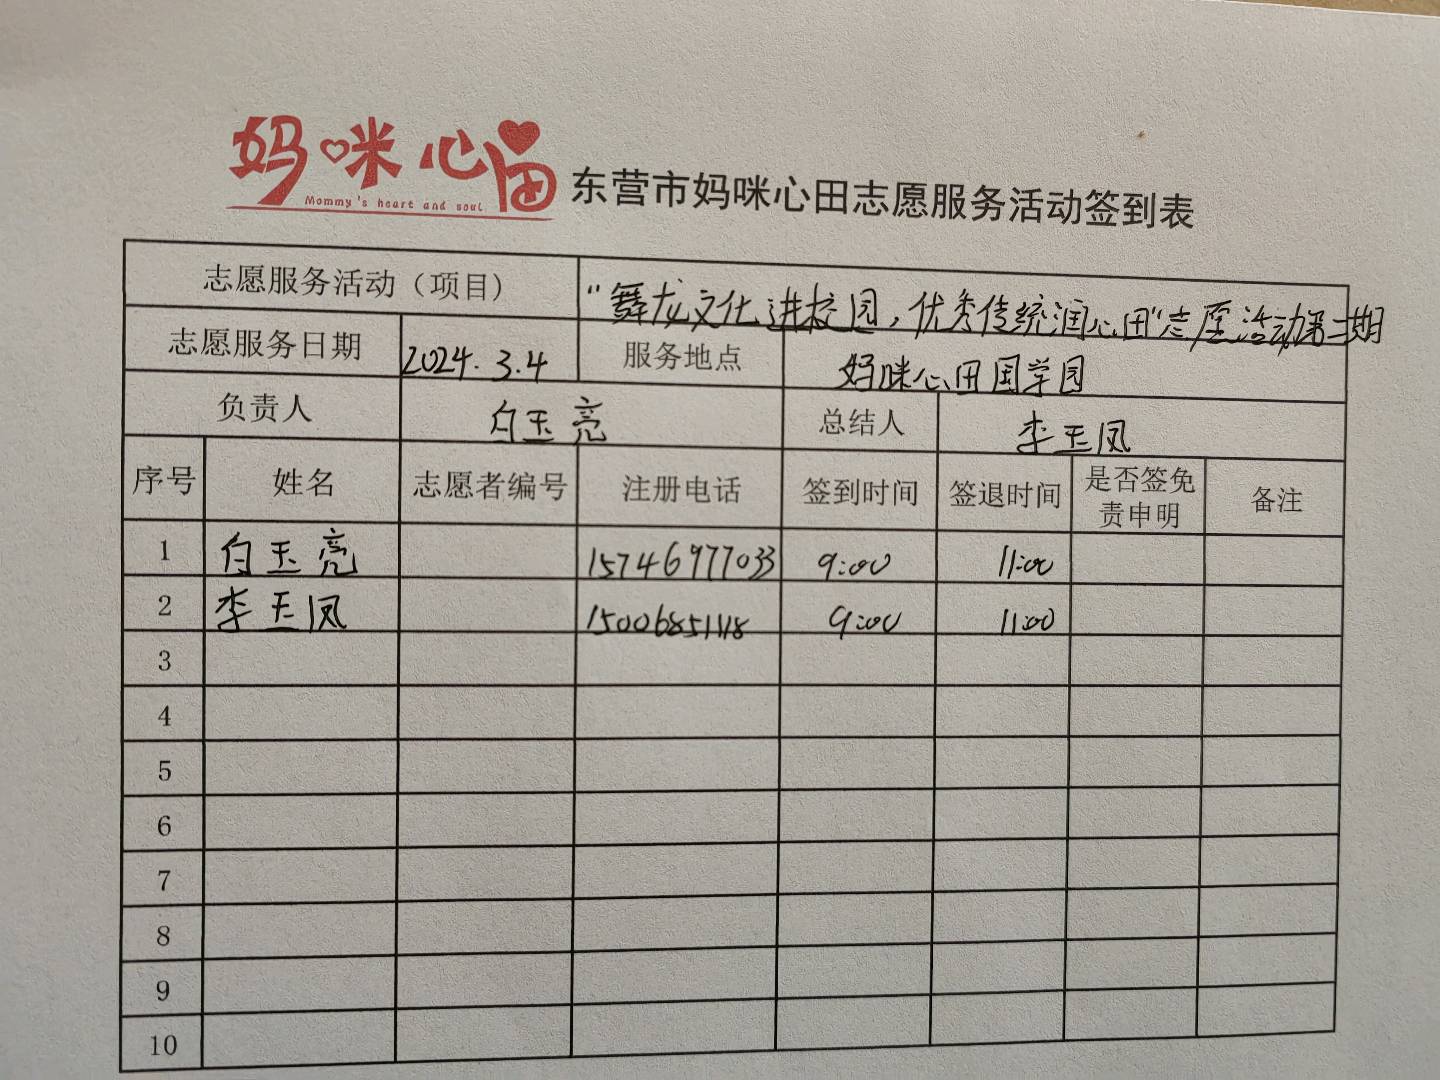 妈咪心田
Mommy's heart and soul
东营市妈咪心田志愿服务活动签到表
志愿服务活动（项目） “舞龙文化进校园，优秀传统润心田”志愿活动第二期
志愿服务日期 2024.3.4 服务地点 妈咪心田国学园
负责人 白玉亮 总结人 李玉凤
序号 姓名 志愿者编号 注册电话 签到时间 签退时间 是否签免责申明 备注
1 白玉亮 15746977033 9:00 11:00
2 李玉凤 15006851118 9:00 11:00
3
4
5
6
7
8
9
10